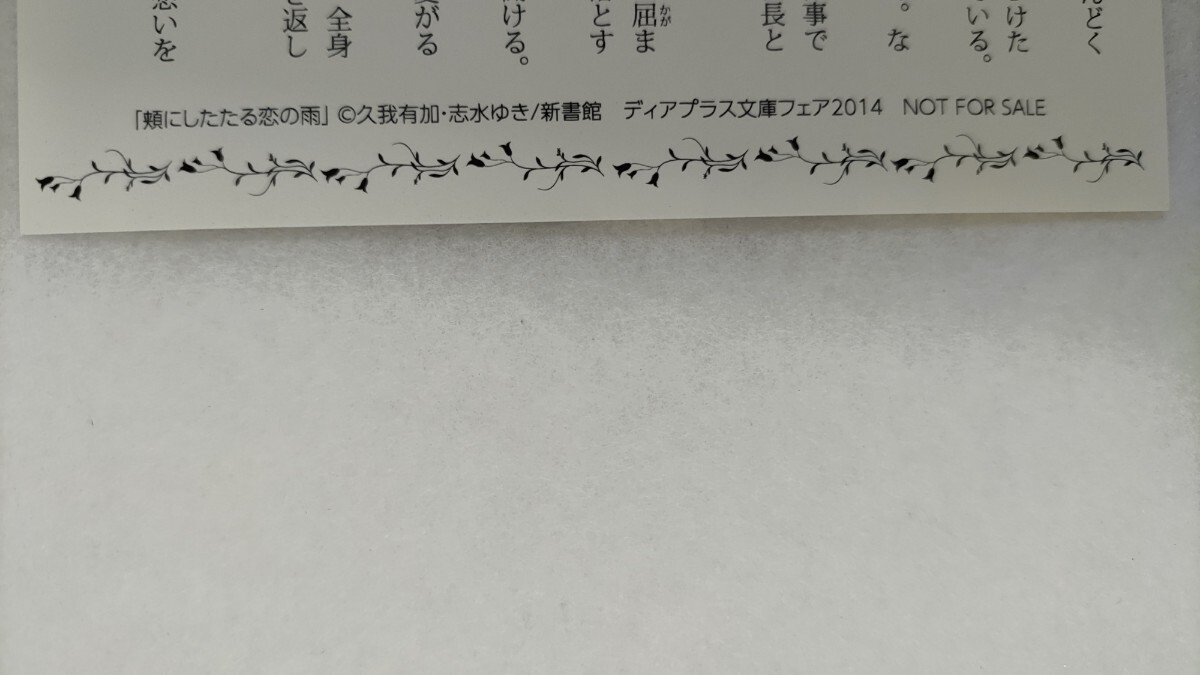 んどく
けた
いる。
。な
事で
長と
屈ま
かが
とす
ける。
がる
全身
返し
思いを
「頬にしたたる恋の雨」©久我有加・志水ゆき/新書館　ディアプラス文庫フェア2014　NOT FOR SALE